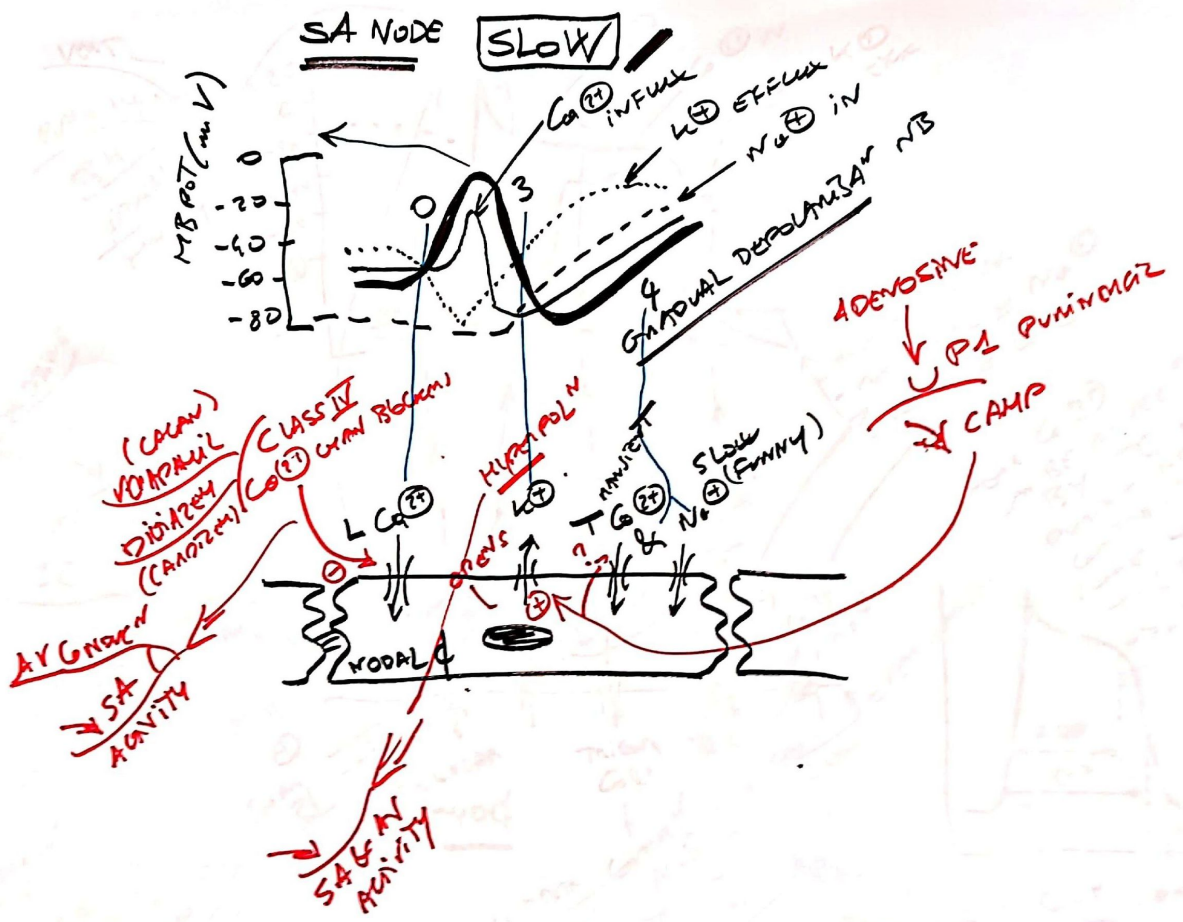 SA NODE
SLOW
MB POT (mV)
0
-20
-40
-60
-80
0
3
4
Ca2+ INFLUX
K+ EFFLUX
Na+ IN
GRADUAL DEPOLARISAN NB
ADENOSINE
P1 PURINERGIC
CAMP
(CALAN)
VERAPAMIL
DILTIAZEM
(CARDIZEM)
CLASS IV
Ca2+ CHAN BLOCKERS
HYPERPOLN
L Ca2+
K+
TRANSIENT
T Ca2+
&
SLOW
Na+ (FUNNY)
OPENS
?
-
+
NODAL
AV CONDN
SA
ACTIVITY
SA & AV
ACTIVITY